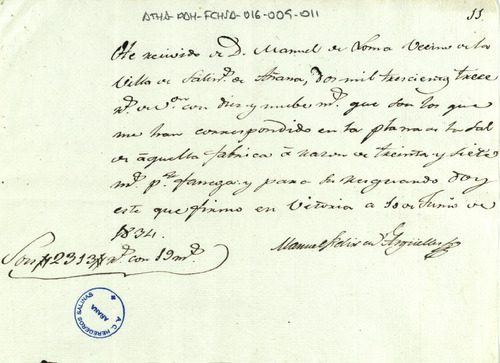 ATHA-DAH-FCHSA-016-009-011
11
He recivido de D. Manuel de Loma Vecino de la
Villa de Salins. de Añana, dos mil trescientos trece
rs. de von. con diez y nuebe ms. que son los que
me han correspondido en la plana de la Sal
de aquella fabrica á razon de treinta y siete
ms. pr. fanega, y para su resguardo doy
este que firmo en Vitoria a 10 de Junio de
1834.
Manuel Felix de
Son # 2313 # rs. con 19 ms.
A.C. HEREDEROS SALINAS
AÑANA